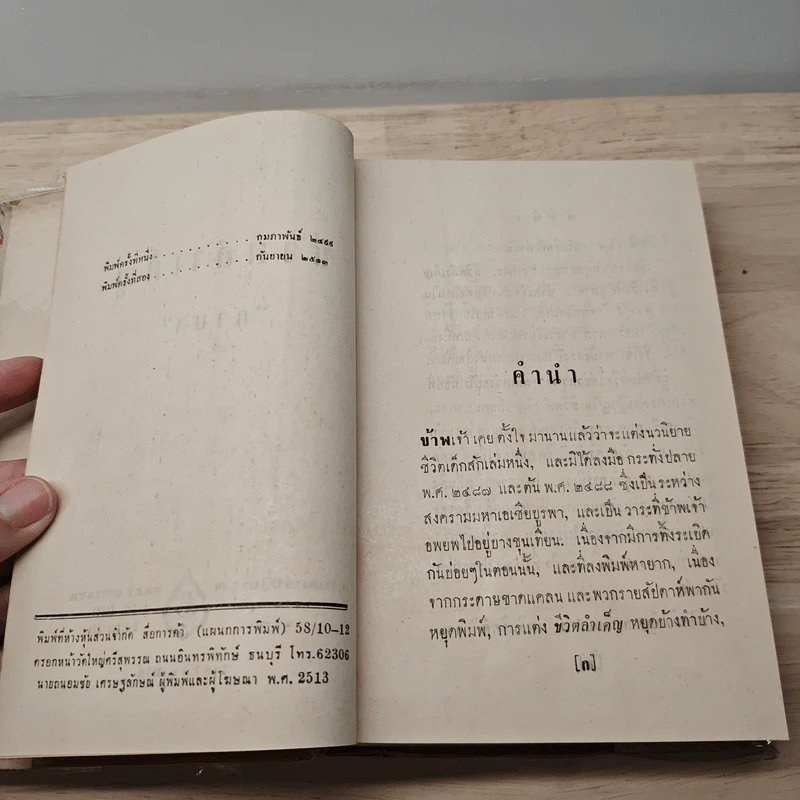 พิมพ์ครั้งที่หนึ่ง . . . . . . . . . . กุมภาพันธ์ ๒๔๙๙
พิมพ์ครั้งที่สอง . . . . . . . . . . กันยายน ๒๕๑๓
พิมพ์ที่ห้างหุ้นส่วนจำกัด สื่อการค้า (แผนกการพิมพ์) 58/10-12
ตรอกหน้าวัดใหญ่ศรีสุพรรณ ถนนอินทรพิทักษ์ ธนบุรี โทร.62306
นายถนอมชัย เศรษฐลักษณ์ ผู้พิมพ์และผู้โฆษณา พ.ศ. 2513
คำนำ
ข้าพเจ้า เคย ตั้งใจ มานานแล้วว่าจะแต่งนวนิยาย
ชีวิตเด็กสักเล่มหนึ่ง, และมิได้ลงมือ กระทั่งปลาย
พ.ศ. ๒๔๘๗ และต้น พ.ศ. ๒๔๘๘ ซึ่งเป็น ระหว่าง
สงครามมหาเอเซียบูรพา, และเป็น วาระที่ข้าพเจ้า
อพยพไปอยู่บางขุนเทียน. เนื่องจากมีการทิ้งระเบิด
กันบ่อยๆในตอนนั้น, และที่ลงพิมพ์หายาก, เนื่อง
จากกระดาษขาดแคลน และพวกรายสัปดาห์พากัน
หยุดพิมพ์, การแต่ง ชีวิตลำเค็ญ หยุดบ้างทำบ้าง,
[ก]